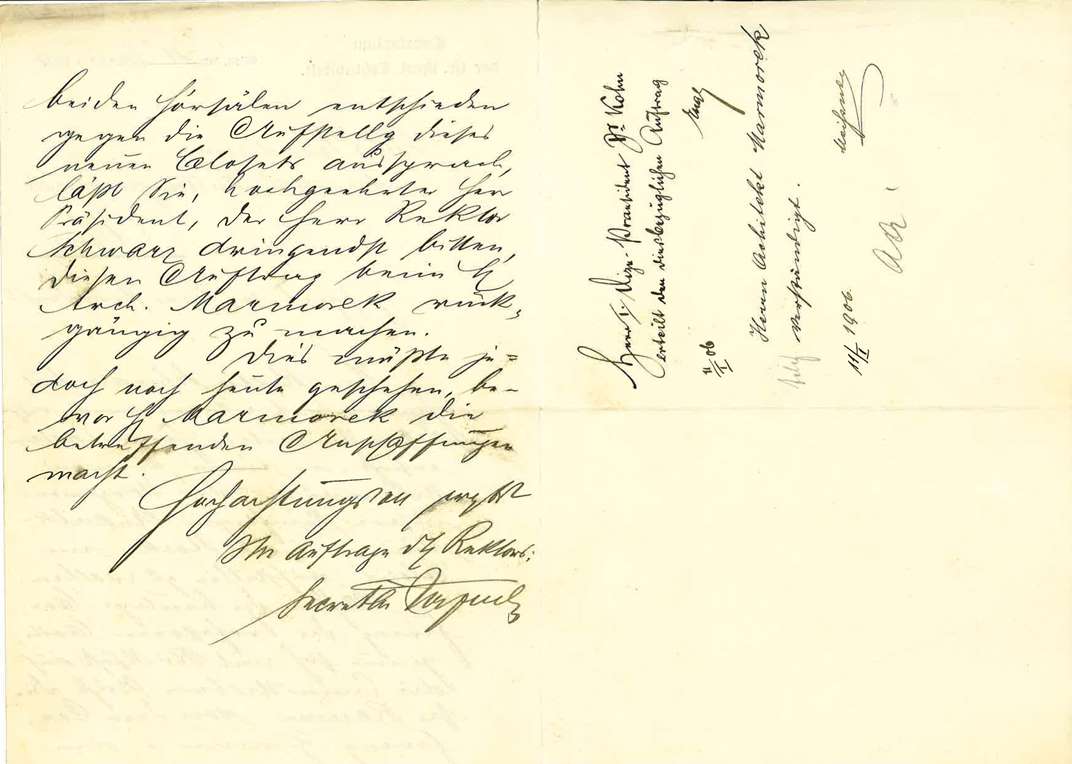 beiden Hörsälen entschieden
gegen die Aufstellg dieses
neuen Closets aussprach,
läßt Sie, hochgeehrter Herr
Präsident, der Herr Rektor
Schwarz dringendst bitten,
diesen Auftrag beim H
Arch. Marmorek rück-
gängig zu machen.
Dies müßte je=
doch noch heute geschehen, be-
vor H Marmorek die
betreffenden Anschaffungen
macht.
Hochachtungsvoll ergbst
Im Auftrage d H Rektors:
Secretär
Herr Vize-Praesident Dr Kohn
erteilt den diesbezüglichen Auftrag
11/I 06
Herrn Architekt Marmorek
verständigt.
11/I 1906